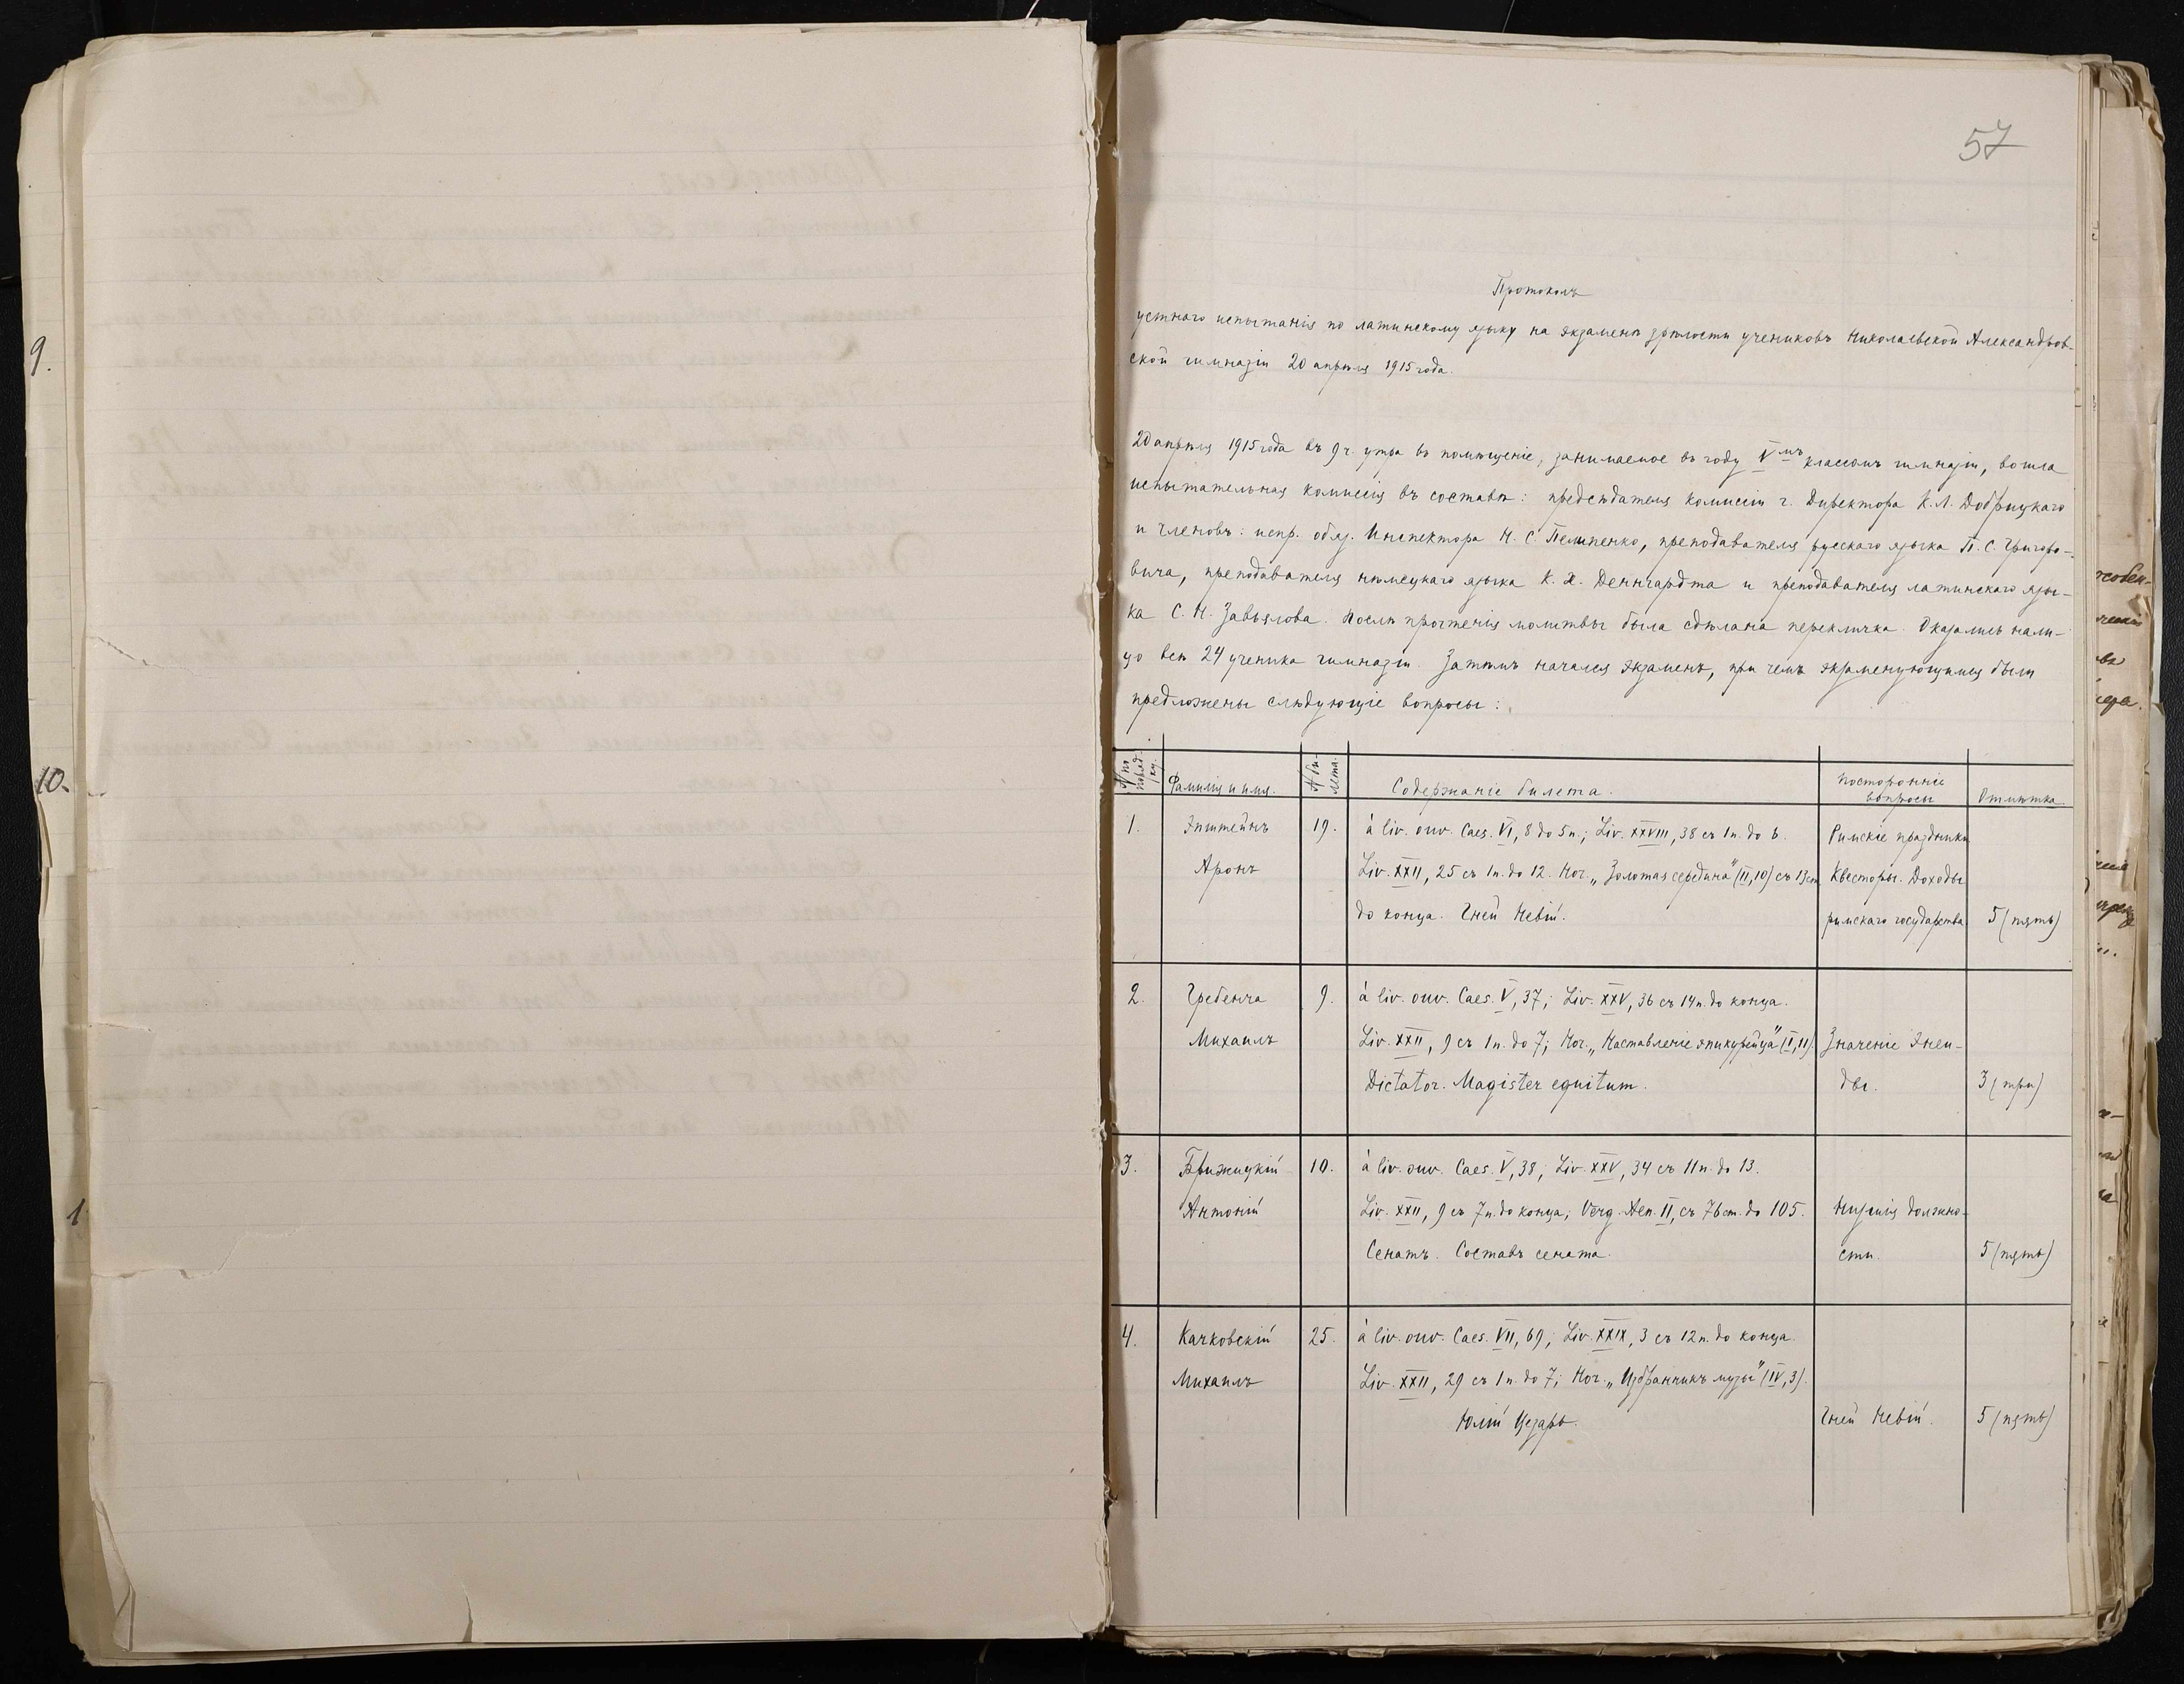 57
Протоколъ
устнаго испытанія по латинскому языку на экзаменѣ зрѣлости учениковъ Николаевской Александров-
ской гимназіи 20 апрѣля 1915 года.
20 апрѣля 1915 года въ 9 ч. утра въ помѣщеніе, занимаемое въ году V мъ классомъ гимназіи, вошла
испытательная комиссія въ составѣ: предсѣдателя комиссіи г. Директора К. Л. Добрицкаго
и членовъ: испр. обяз. Инспектора Н. С. Пелипенко, преподавателя русскаго языка П. С. Григоро-
вича, преподавателя нѣмецкаго языка К. Х. Деннгардта и преподавателя латинскаго язы-
ка С. Н. Завьялова. Послѣ прочтенія молитвы была сдѣлана перекличка. Оказались нали-
цо всѣ 24 ученика гимназіи. Затѣмъ начался экзаменъ, при чемъ экзаменующимся были
предложены слѣдующіе вопросы:
№ по поряд-ку. Фамилія и имя. № би-лета. Содержаніе билета. Посторонніе вопросы Отмѣтка.
1. Эпштейнъ 19. à liv. ouv. Caes. VI, 8 до 5 п.; Liv. XXVIII, 38 съ 1 п. до 6. Римскіе праздники
Аронъ Liv. XXII, 25 съ 1 п. до 12. Hor. „Золотая середина" (II, 10) съ 13 ст. Квесторы. Доходы
до конца. Гней Невій. римскаго государства. 5 (пять)
2. Гребенча 9. à liv. ouv. Caes. V, 37; Liv. XXV, 36 съ 14 п. до конца.
Михаилъ Liv. XXII, 9 съ 1 п. до 7; Hor. „Наставленіе эпикурейца" (I, 11). Значеніе Энеи-
Dictator. Magister equitum. ды. 3 (три)
3. Брижицкій 10. à liv. ouv. Caes. V, 38; Liv. XXV, 34 съ 11 п. до 13.
Антоній Liv. XXII, 9 съ 7 п. до конца; Verg. Aen. II, съ 76 ст. до 105. Низшія должно-
Сенатъ. Составъ сената. сти. 5 (пять)
4. Качковскій 25. à liv. ouv. Caes. VII, 69; Liv. XXIX, 3 съ 12 п. до конца.
Михаилъ Liv. XXII, 29 съ 1 п. до 7; Hor. „Избранникъ музы" (IV, 3).
Юлій Цезарь. Гней Невій. 5 (пять)
9.
10.
1